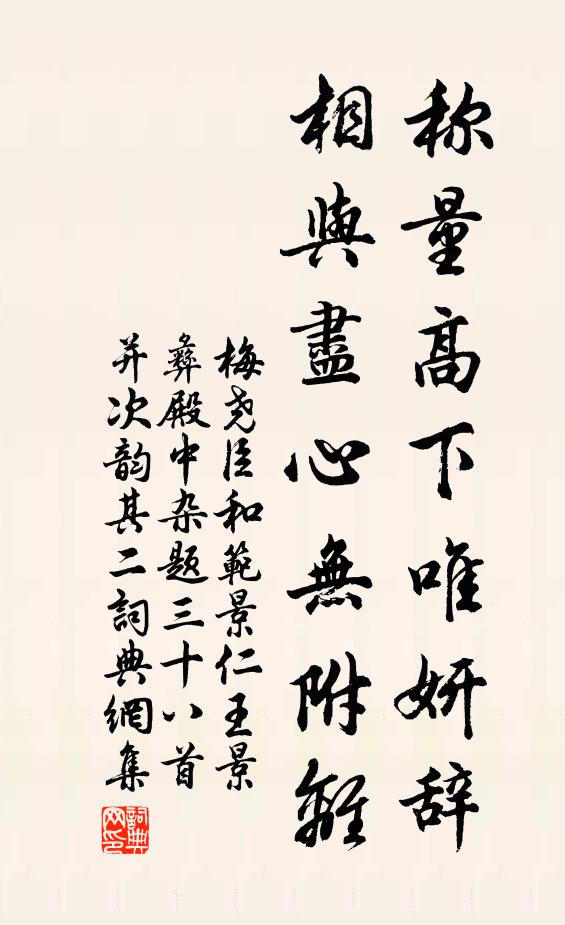 称量高下唯妍辞
相與盡心無附離
梅尧臣和範景仁王景
彝殿中杂题三十八首
并次韵其二詞典網集